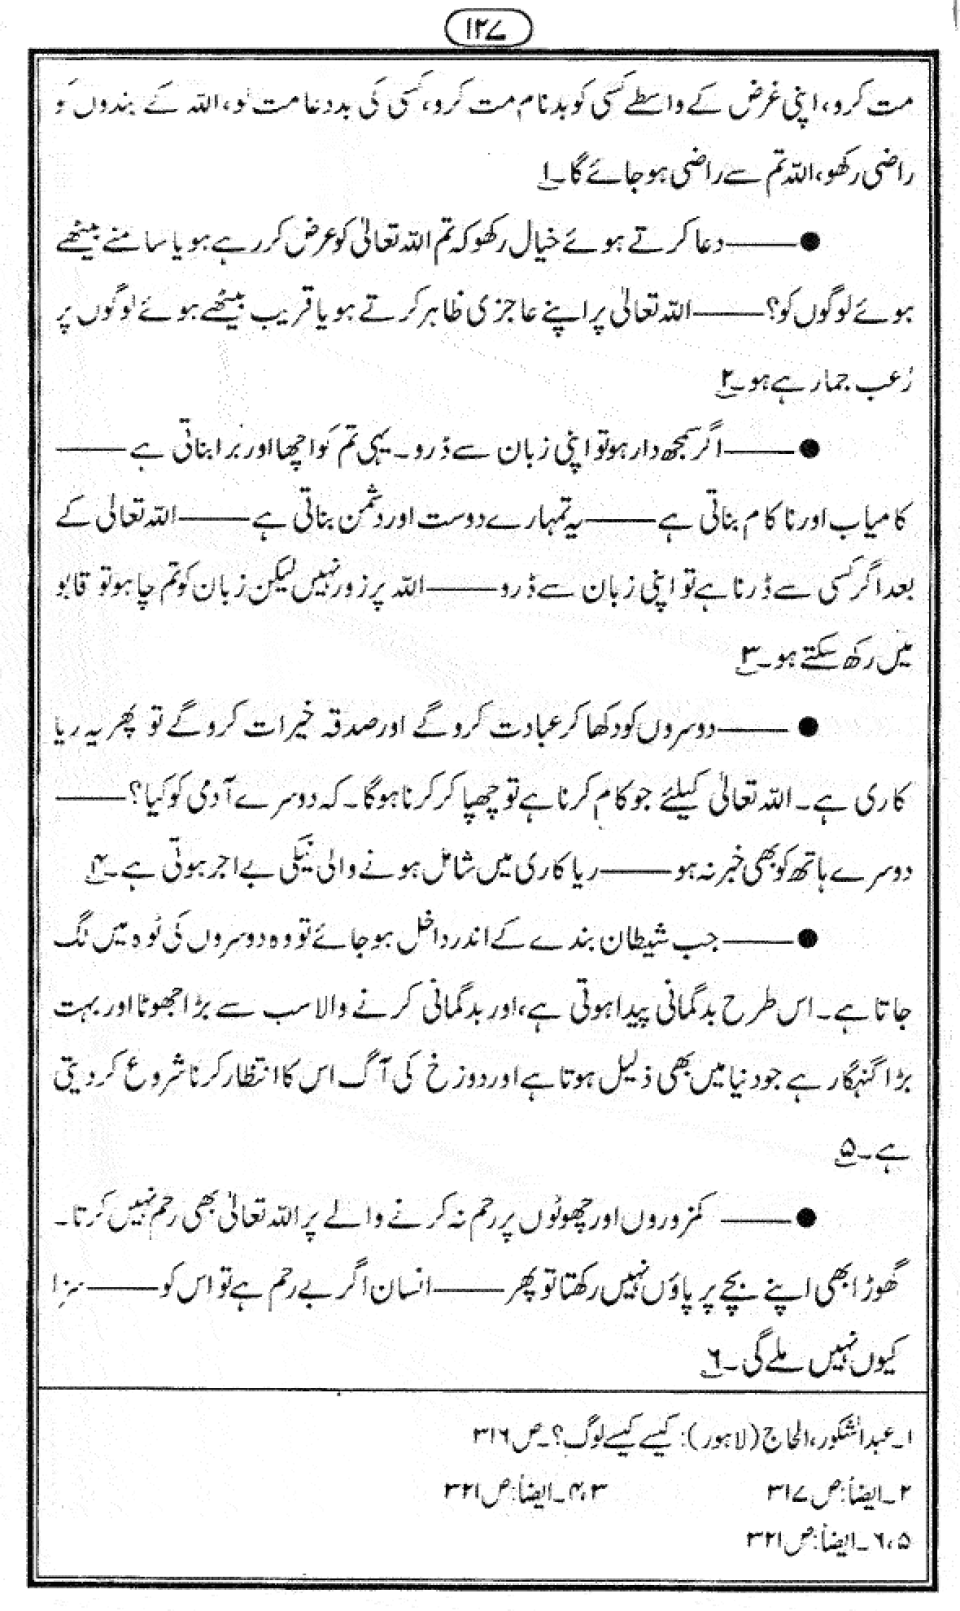 ۱۲۷
مت کرو، اپنی غرض کے واسطے کسی کو بدنام مت کرو، کسی کی بددعا مت لو، اللہ کے بندوں کو
راضی رکھو، اللہ تم سے راضی ہو جائے گا۔۱
●——دعا کرتے ہوئے خیال رکھو کہ تم اللہ تعالیٰ کو عرض کر رہے ہو یا سامنے بیٹھے
ہوئے لوگوں کو؟——اللہ تعالیٰ پر اپنے عاجزی ظاہر کرتے ہو یا قریب بیٹھے ہوئے لوگوں پر
رُعب جما رہے ہو۔۲
●——اگر سمجھ دار ہو تو اپنی زبان سے ڈرو۔ یہی تم کو اچھا اور برا بناتی ہے——
کامیاب اور ناکام بناتی ہے——یہ تمہارے دوست اور دشمن بناتی ہے——اللہ تعالی کے
بعد اگر کسی سے ڈرنا ہے تو اپنی زبان سے ڈرو——اللہ پر زور نہیں لیکن زبان کو تم چاہو تو قابو
میں رکھ سکتے ہو۔۳
●——دوسروں کو دکھا کر عبادت کرو گے اور صدقہ خیرات کرو گے تو پھر یہ ریا
کاری ہے۔ اللہ تعالیٰ کیلئے جو کام کرنا ہے تو چھپا کر کرنا ہوگا۔ کہ دوسرے آدمی کو کیا؟——
دوسرے ہاتھ کو بھی خبر نہ ہو——ریا کاری میں شامل ہونے والی نیکی بے اجر ہوتی ہے۔۴
●——جب شیطان بندے کے اندر داخل ہو جائے تو وہ دوسروں کی ٹوہ میں لگ
جاتا ہے۔ اس طرح بدگمانی پیدا ہوتی ہے، اور بدگمانی کرنے والا سب سے بڑا جھوٹا اور بہت
بڑا گنہگار ہے جو دنیا میں بھی ذلیل ہوتا ہے اور دوزخ کی آگ اس کا انتظار کرنا شروع کر دیتی
ہے۔۵
●——کمزوروں اور چھوٹوں پر رحم نہ کرنے والے پر اللہ تعالیٰ بھی رحم نہیں کرتا۔
گھوڑا بھی اپنے بچے پر پاؤں نہیں رکھتا تو پھر——انسان اگر بے رحم ہے تو اس کو——سزا
کیوں نہیں ملے گی۔۶
۱۔ عبدالشکور، الحاج (لاہور): کیسے کیسے لوگ؟۔ ص ۳۱۶
۲۔ ایضاً: ص ۳۱۷ ۴،۳۔ ایضاً: ص ۳۲۱
۶،۵۔ ایضاً: ص ۳۲۱